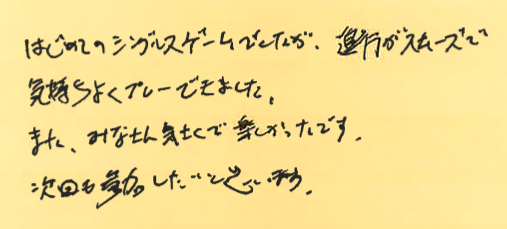 はじめてのシングルスゲームでしたが、進行がスムーズで
気持ちよくプレーできました。
また、みなさん気さくで楽しかったです。
次回も参加したいと思います。